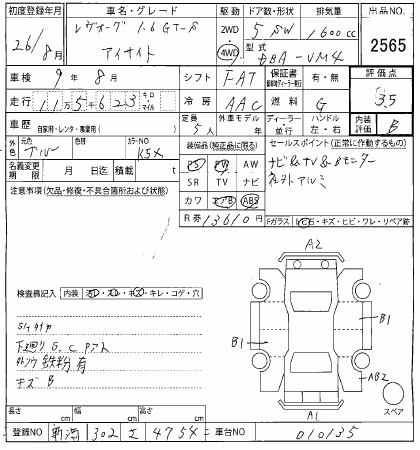 初度登録年月 車名・グレード 駆動 ドア数、形状 排気量 出品NO.
26/8月 レヴォーグ 1.6 GT-S アイサイト 2WD 4WD 5 SW 1600cc 2565
型式 DBA-VM4
車検 9年8月 シフト FAT 保証書 有・無 評価点
走行 11万5千623 キロ マイル 冷房 AAC 燃料 G 3.5
車歴 自家用・レンタ・専業用( ) 定員 5人 外車モデル年 ディーラー 並行 ハンドル 左・右 内装評価 B
外色 元色 色替 カラーNO
K5X
装備品(純正品に限る) セールスポイント(正常に作動するもの)
名義変更期限 月 日迄 積載 t
PS PW AW
SR TV ナビ
ナビ&TV&Bモニター
注意事項(欠品・修復・不具合箇所および状態)
カワ エアB ABS
R券 13610円
Fガラス トビ石・キズ・ヒビ・ワレ・リペア跡
A2
検査員記入 内装 汚レ・スレ・キズ・キレ・コゲ・穴
B1
B1
下廻りS.C Pアト
鉄粉有
キズB
AB2
A1
スペア
長さ cm 幅 cm 高さ cm
登録NO 新潟 302 4754 車台NO 010135